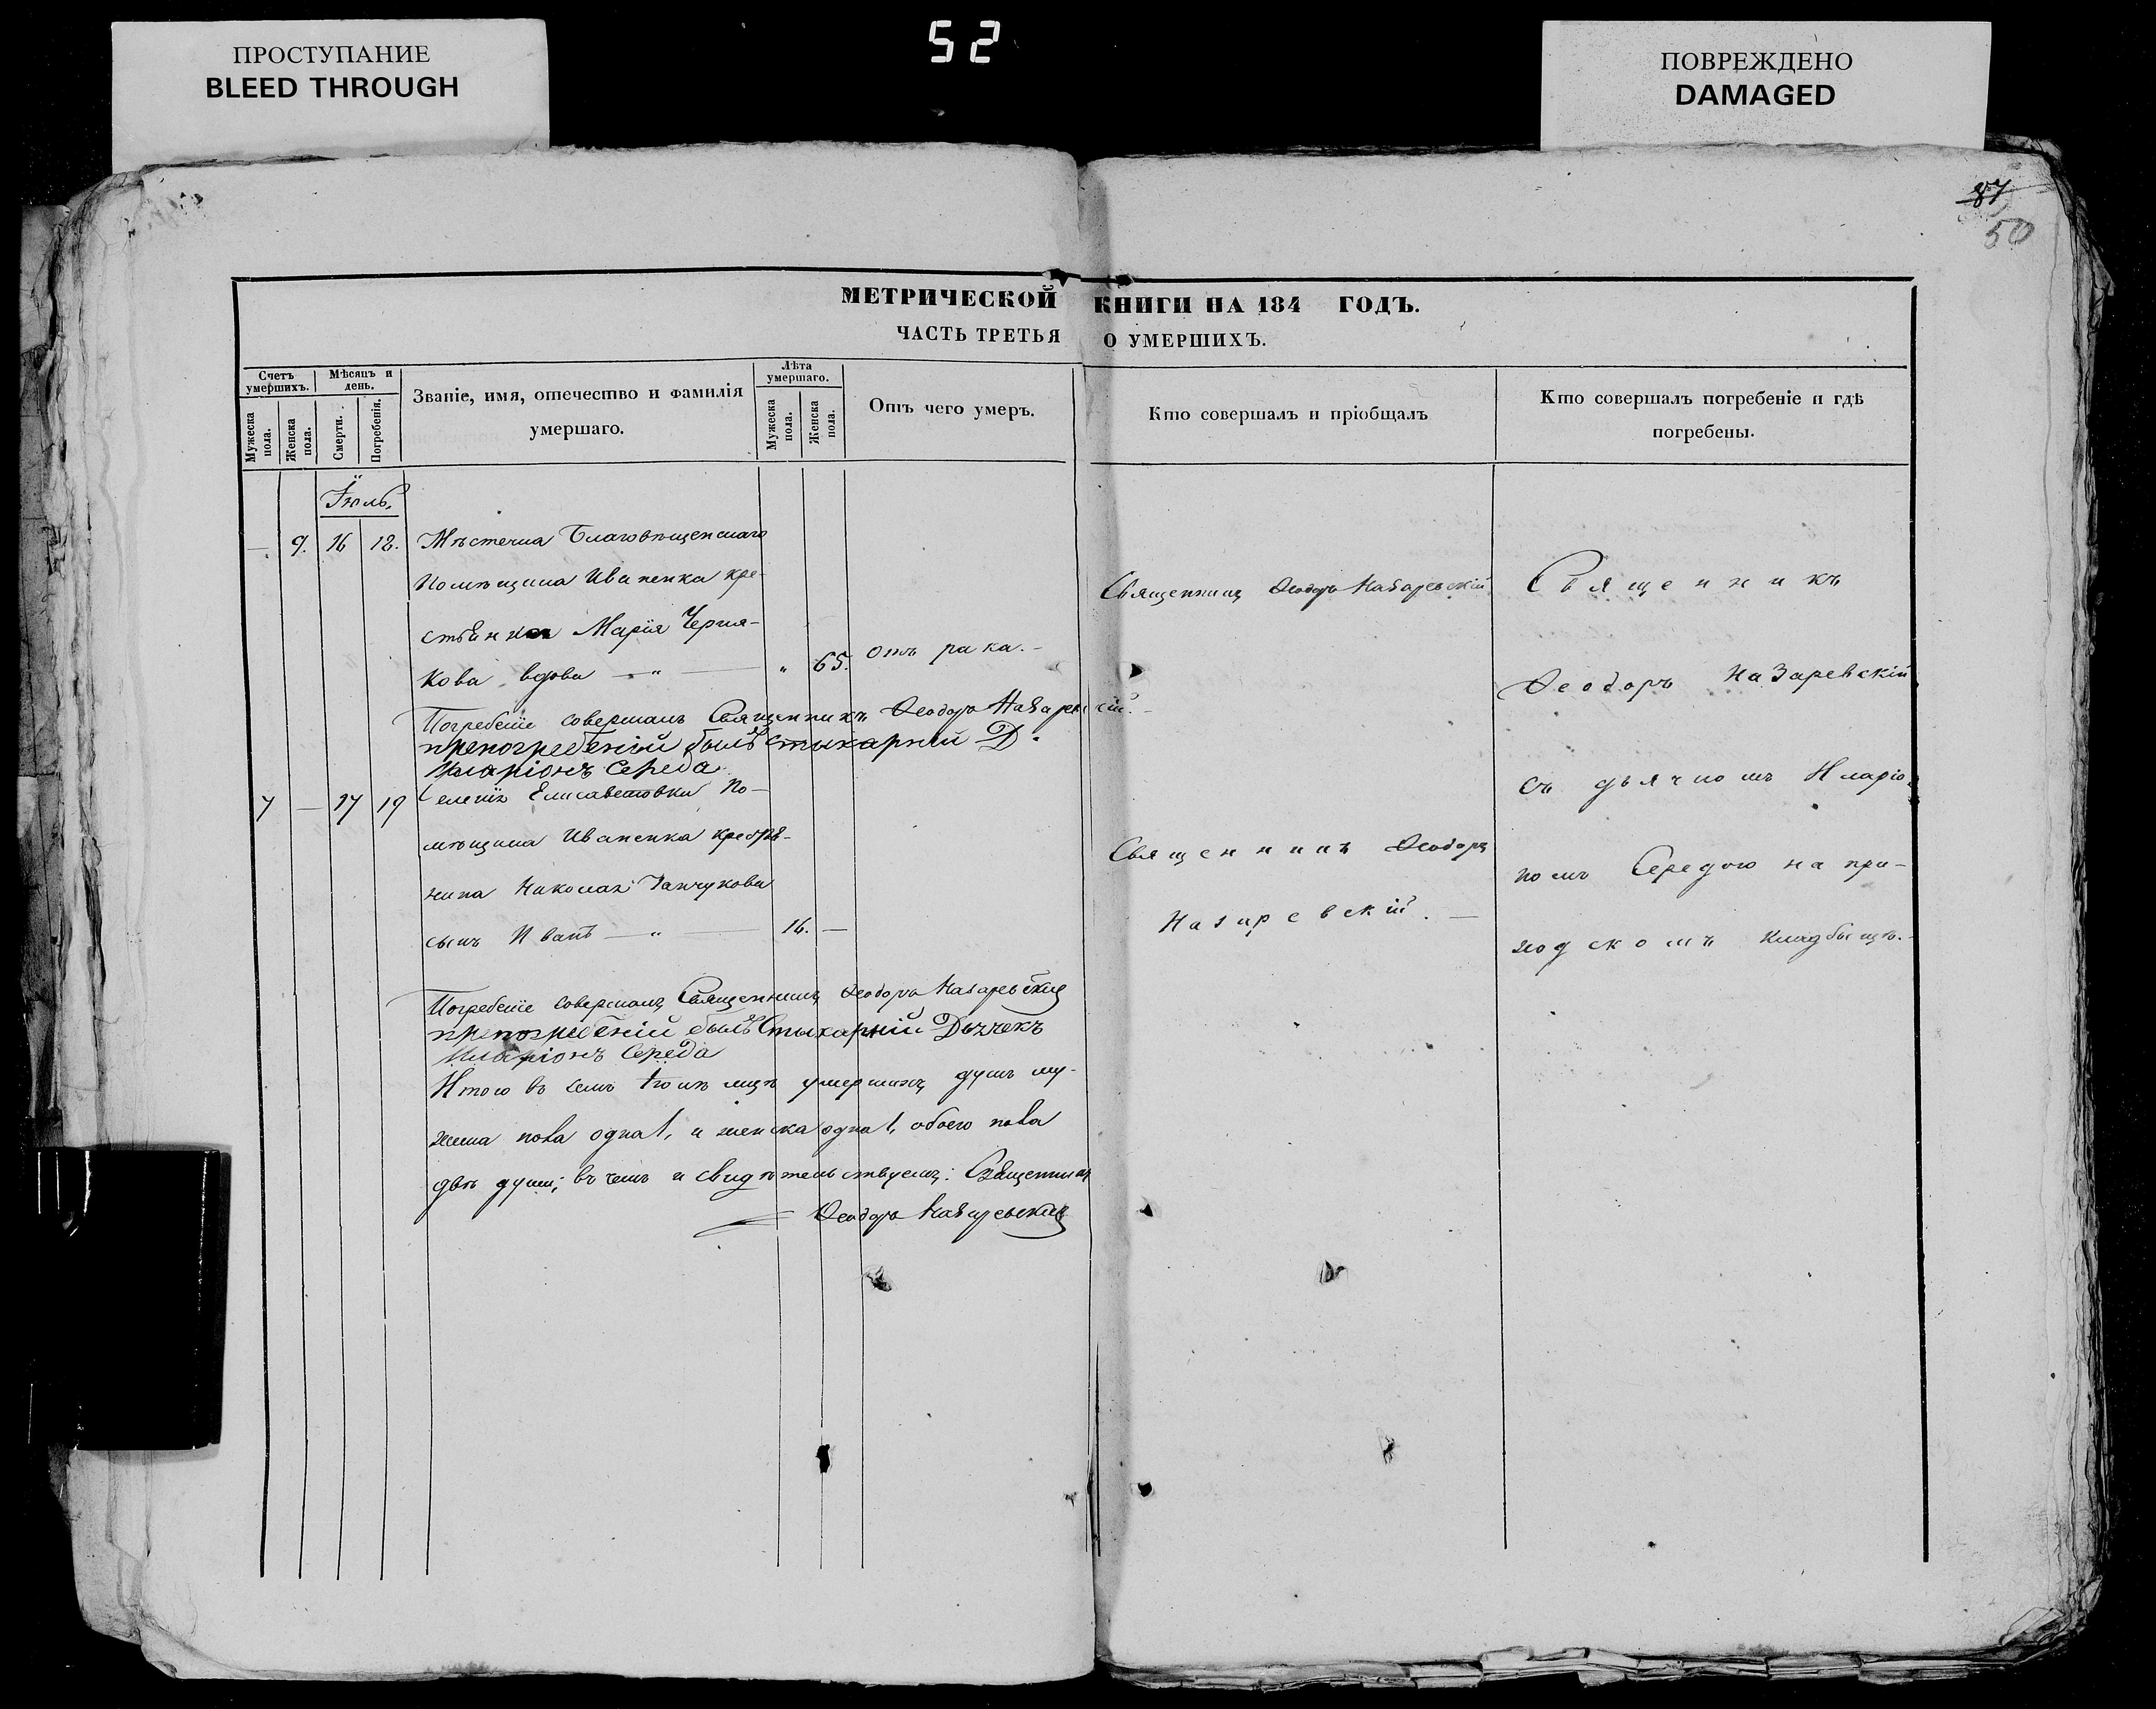 ПРОСТУПАНИЕ
BLEED THROUGH
52
ПОВРЕЖДЕНО
DAMAGED
87
50
МЕТРИЧЕСКОЙ КНИГИ НА 184 ГОДЪ.
ЧАСТЬ ТРЕТЬЯ О УМЕРШИХЪ.
Счетъ умершихъ.
Мужеска пола.
Женска пола.
Мѣсяцъ и день.
Смерти.
Погребенія.
Званіе, имя, отечество и фамилія
умершаго.
Лѣта умершаго.
Мужеска пола.
Женска пола.
Отъ чего умеръ.
Кто совершалъ и пріобщалъ
Кто совершалъ погребеніе и гдѣ
погребены.
Іюль.
— 9. 16 18. Мѣстечка Благовѣщенскаго
помѣщика Иваненка кре-
стьянка Марія Черня-
кова вдова — „ — „ 65. отъ рака. —
Священникъ Ѳеодоръ Назаревскій
Погребеніе совершалъ Священникъ Ѳеодоръ Назаревскій.
припогребеніи былъ стихарный Д.
Иларіонъ Середа
7 — 17 19 Селенія Елисаветовки по-
мѣщика Иваненка крестья-
нина Николая Ганчукова
сынъ Иванъ — „ — 16. —
Священникъ Ѳеодоръ
Назаревскій. —
Священникъ
Ѳеодоръ Назаревскій
съ дьячкомъ Иларіо-
номъ Середою на при-
ходскомъ кладбищѣ. —
Погребеніе совершалъ Священникъ Ѳеодоръ Назаревскій
припогребеніи былъ Стихарній Дьячекъ
Иларіонъ Середа
Итого въ семъ Іюлѣ мцѣ умершихъ душъ му-
жеска пола одна 1, и женска одна 1, обоего пола
двѣ души; въ чемъ и свидѣтельствуемъ: Священникъ
Ѳеодоръ Назаревскій